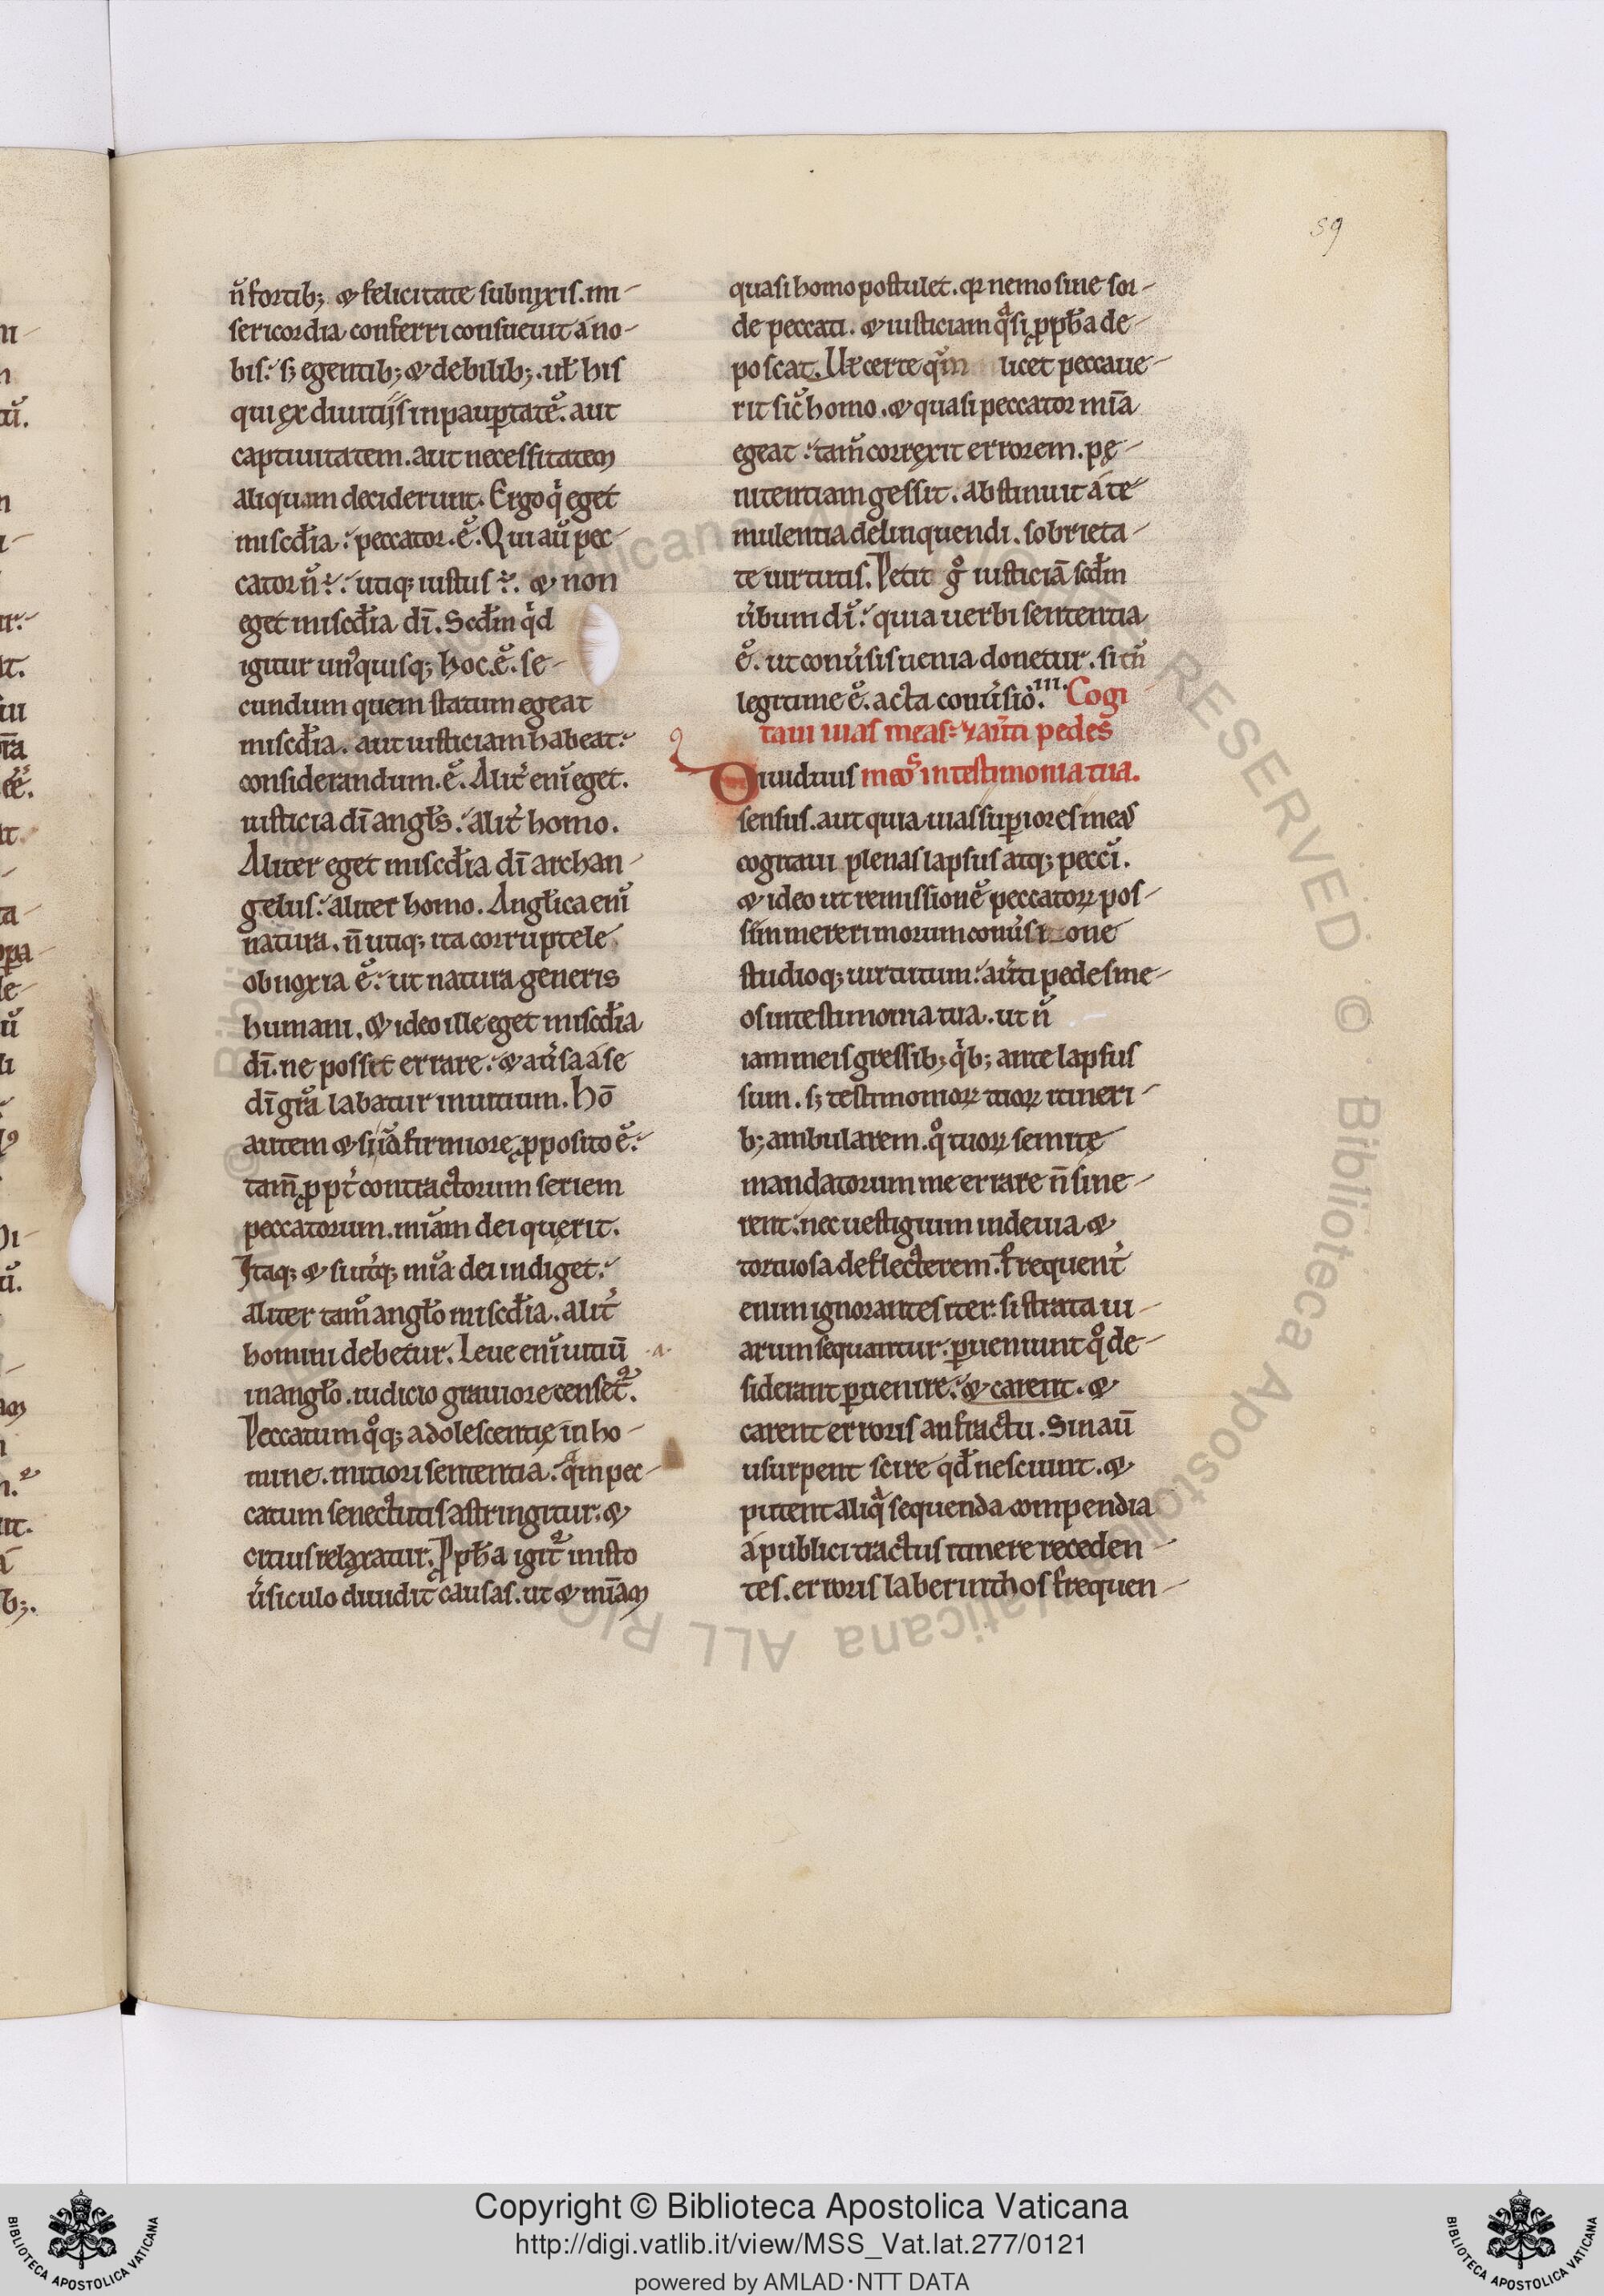 59
n̄ fortib; & felicitate subnixis. mi-
sericordia conferri consueuit á no-
bis. s; egentib; & debilib;. uł his
qui ex diuitijs in paup̄tatē. aut
captiuitatem. aut necessitatem
aliquam deciderunt. Ergo q̇ eget
misc̄dia. peccator. ē. Qui aū pec-
cator n̄ ÷. utiq; iustus ÷. & non
eget misc̄dia dī. Scd̄m q̇d
igitur un̾quisq; hoc. ē. se-
cundum quem statum egeat
misc̄dia. aut iusticiam habeat.
considerandum. ē. Alit̾ enī eget.
iusticia dī angłs. alit̾ homo.
Aliter eget misc̄dia dī archan-
gelus. aliter homo. Angłica enī
natura. n̄ utiq; ita corruptele
obnoxia ē. ut natura generis
humani. & ideo ille eget misc̄dia
dī. ne posset errare. & au̾sa á se
dī grā labatur in uitium. hō
autem & si
tam̄ ꝓpt̾ contractorum seriem
peccatorum. miām dei querit.
Itaq; & si ut̾q; miā dei indiget.
aliter tam̄ angło misc̄dia. alit̾
homini debetur. Leue enī uitiū .a.
in angło. iudicio grauiore censet̾.
Peccatum q̊q; adolescentię in ho-
mine. mitiori sententia. q̄m pec-
catum senectutis astringitur. &
citius relaxatur. Ꝓph̄a igit̾ in isto
u̾siculo diuidit causas. ut & miām
quasi homo postulet. qꝛ nemo sine sor-
de peccati. & iusticiam q̄si ꝓph̄a de-
poscat. Uł certe q̄m licet peccaue-
rit sic̄ homo. & quasi peccator miā
egeat. tam̄ correxit errorem. pę-
nitentiam gessit. abstinuit á te-
mulentia delinquendi. sobrieta-
te uirtutis. Petit g̊ iusticiā scd̄m
u̾bum dī. quia uerbi sententia
ē. ut conu̾sis uenia donetur. si tn̄
legitime ē. acta conu̾sio. III. Cogi
taui uias meas: & au̾ti pedes
Diuiduus meos in testimonia tua.
sensus. aut quia uias sup̄iores meas
cogitaui plenas lapsus atq; peccī.
& ideo ut remissionē peccatoꝝ pos-
sim mereri morum conu̾sione
studioq; uirtutum. au̾ti pedes me-
os in testimonia tua. ut n̄
iam meis gressib; q̇b; ante lapsus
sum. s; testimonioꝝ tuoꝝ itineri-
b; ambularem. q̊ tuoꝝ semitę
mandatorum me errare n̄ sine-
rent. nec uestigium in deuia &
tortuosa deflecterem. Frequent̾
enim ignorantes iter. si strata ui-
arum sequantur. ꝑueniunt q̊ de-
siderant ꝑuenire. & carent. &
carent erroris anfractu. Sin aū
usurpent scire qd̄ nesciunt. &
putent aliq̄ sequenda compendia
á publici tractus itinere receden
tes. erroris laberinthos frequen-
Copyright © Biblioteca Apostolica Vaticana
http://digi.vatlib.it/view/MSS_Vat.lat.277/0121
powered by AMLAD·NTT DATA
BIBLIOTECA APOSTOLICA VATICANA
BIBLIOTECA APOSTOLICA VATICANA